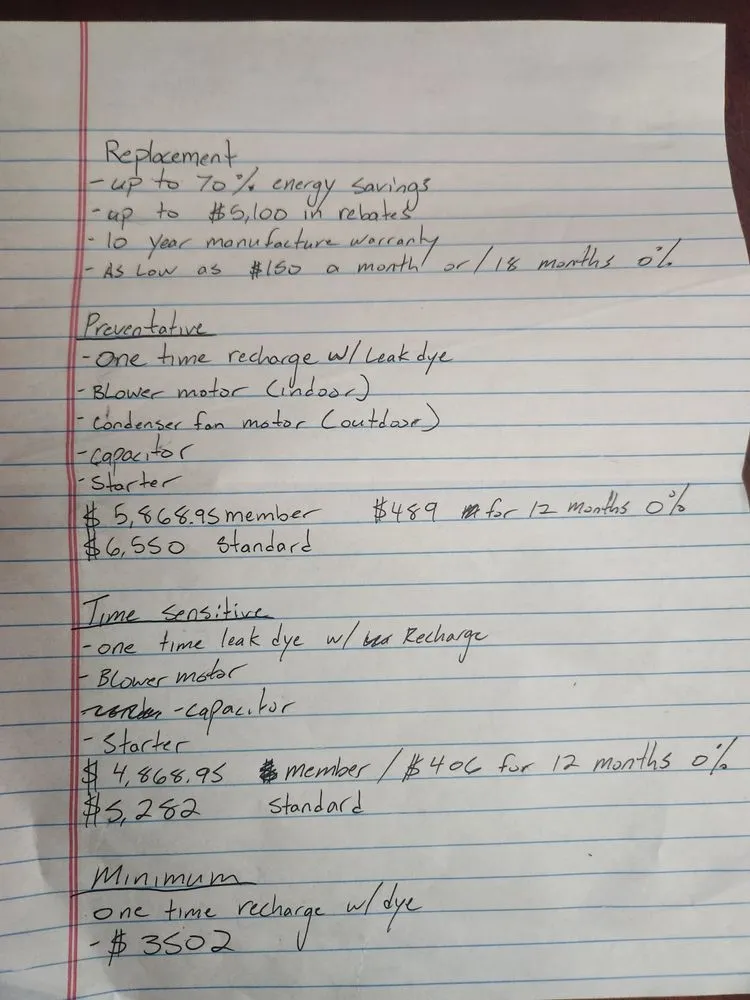 Replacement
- up to 70% energy savings
- up to $5,100 in rebates
- 10 year manufacture warranty
- As Low as $150 a month or / 18 months 0%
Preventative
- One time recharge w/ Leak dye
- Blower motor (indoor)
- Condenser fan motor (outdoor)
- capacitor
- Starter
$ 5,868.95 member $489 for 12 months 0%
$6,550 Standard
Time sensitive
- one time leak dye w/ Recharge
- Blower motor
- capacitor
- Starter
$ 4,868.95 member / $406 for 12 months 0%
$5,282 Standard
Minimum
one time recharge w/ dye
- $ 3502